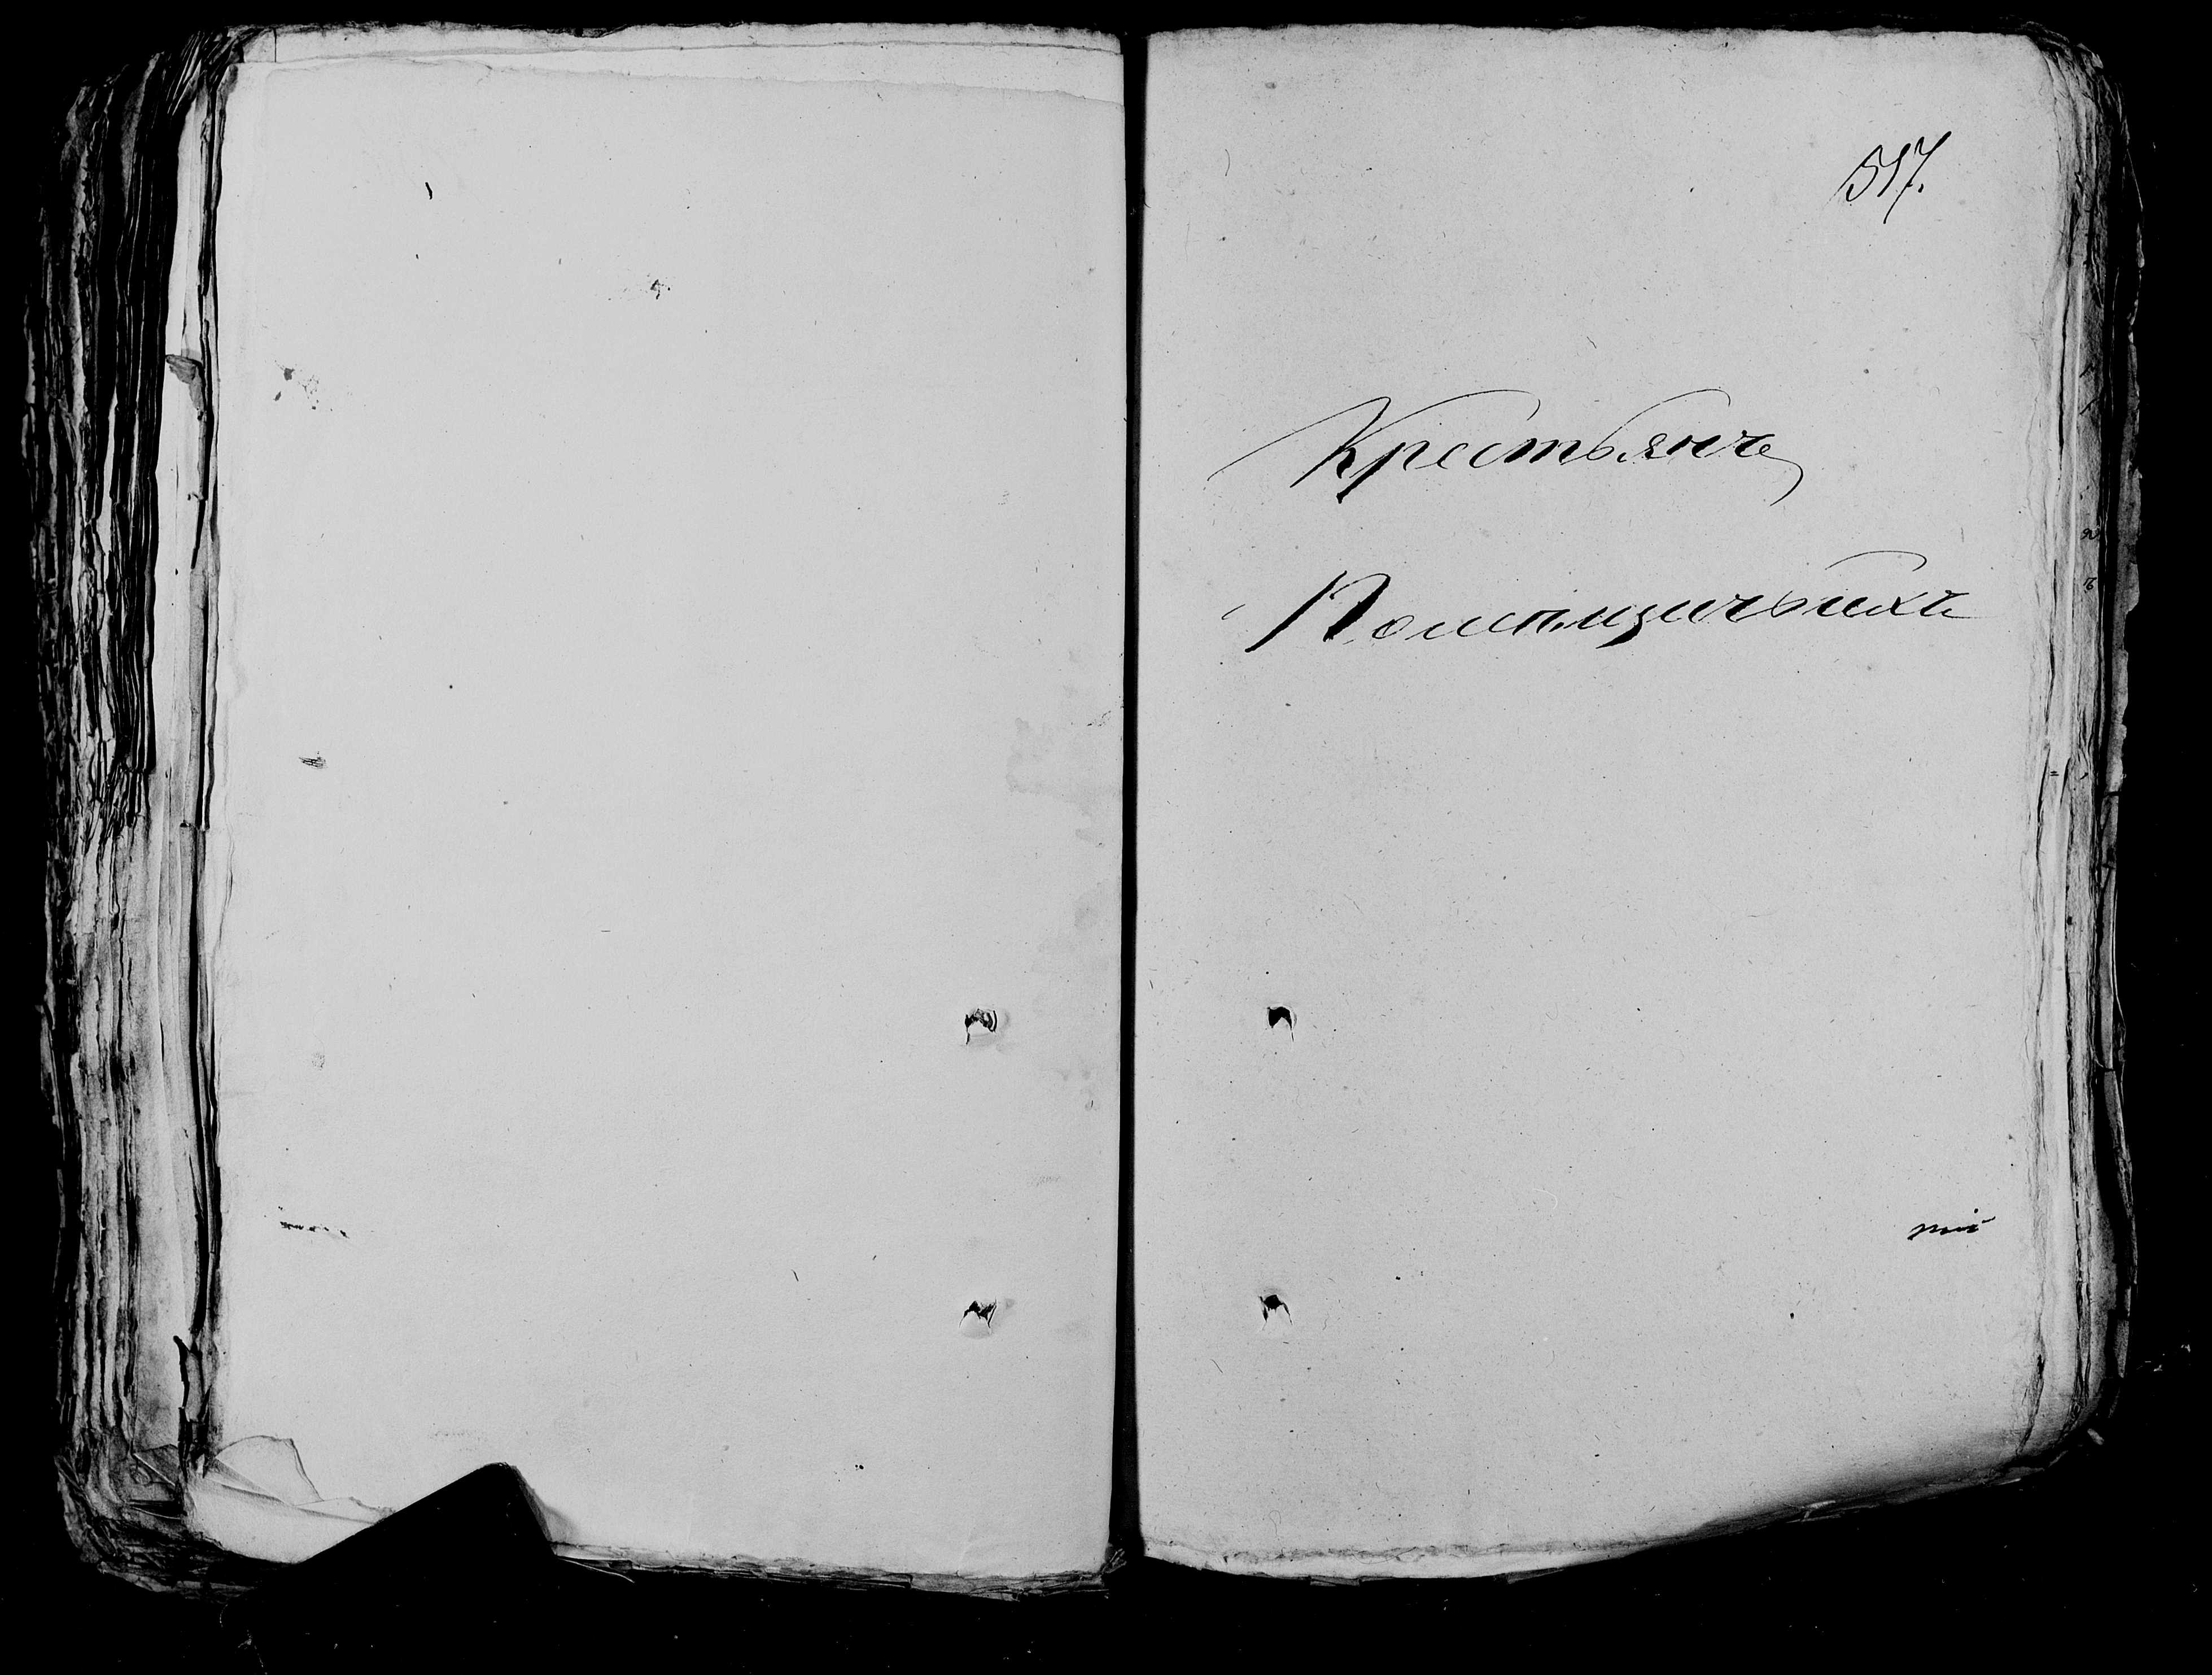 517.
Крестьянъ
Помѣщичьихъ